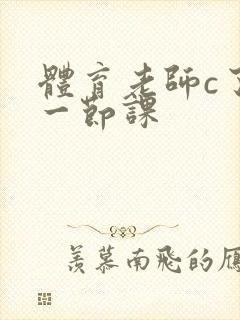 體育老師c了
一節課
羨慕南飛的雁